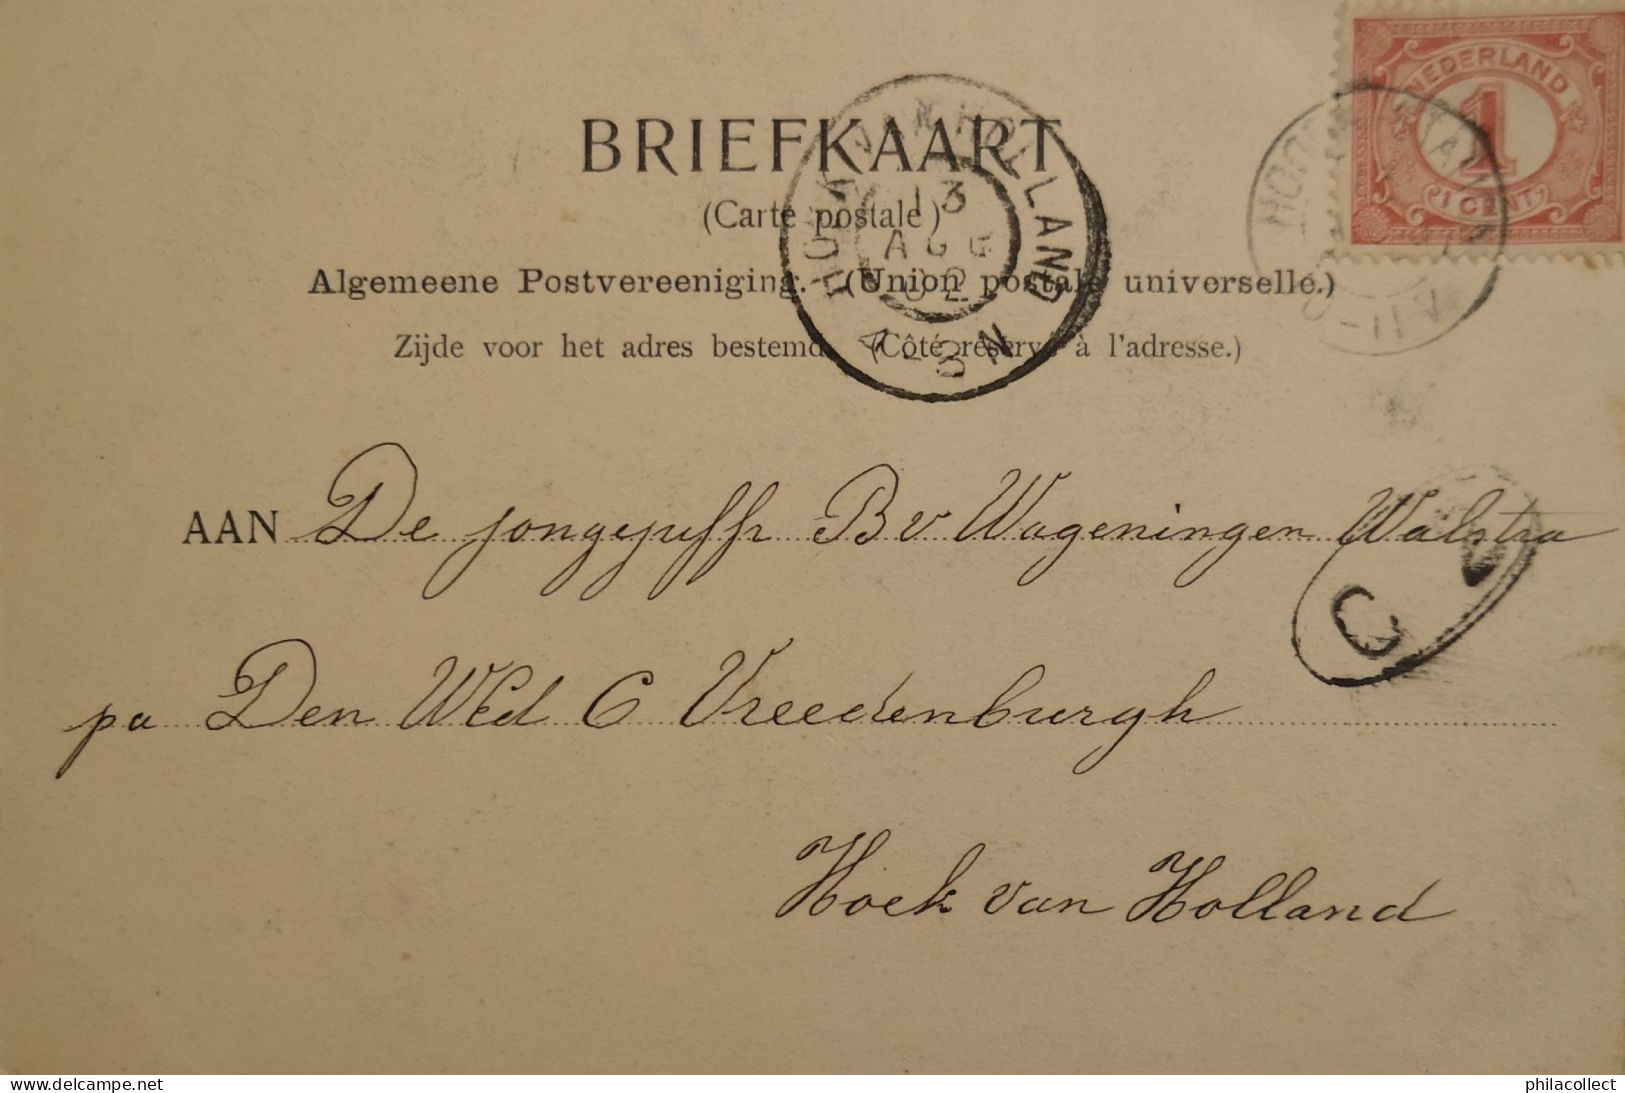 NEDERLAND
1
1 CENT
BRIEFKAART
(Carte postale)
Algemeene Postvereeniging. (Union postale universelle.)
Zijde voor het adres bestemd. (Côté réservé à l'adresse.)
HOEK VAN HOLLAND
13
AUG
02
AAN De jongejuffr B v Wageningen Walstra
pa Den WEd C Vreedenburgh
Hoek van Holland
www.delcampe.net
philacollect